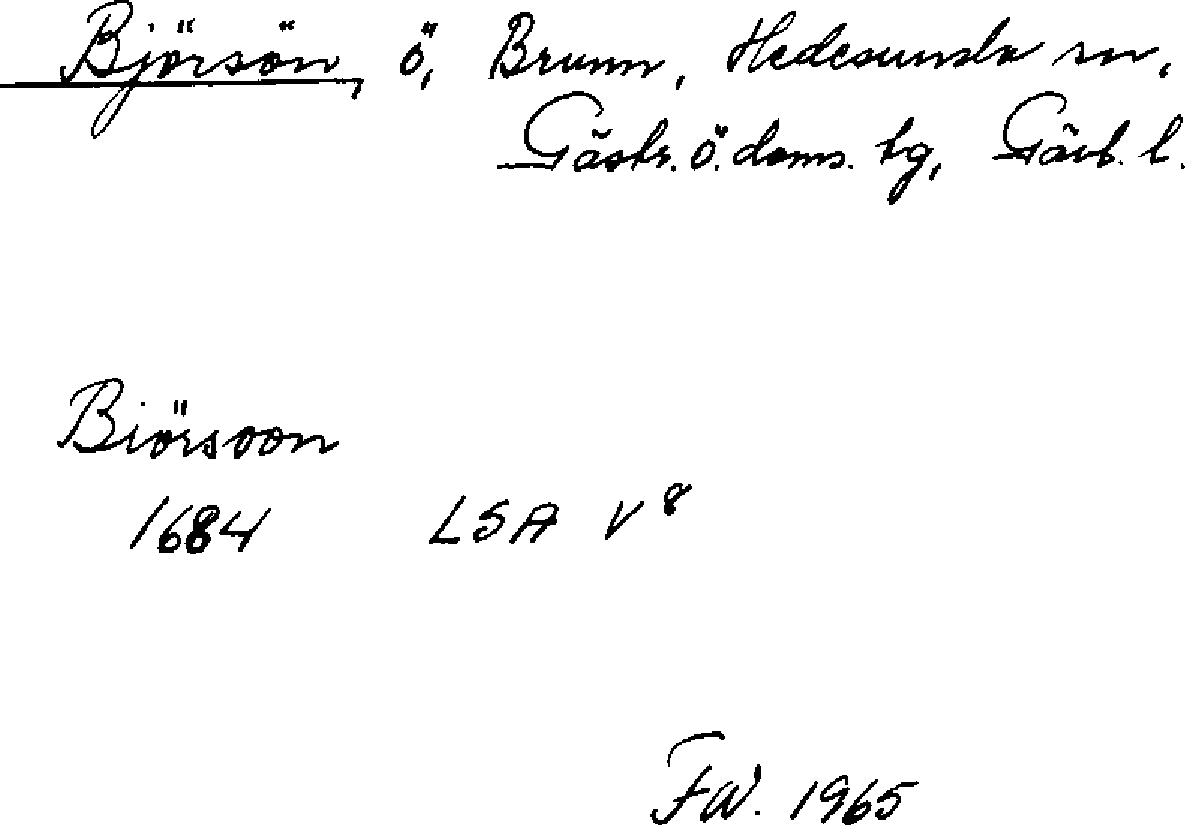 Björsön, ö, Brunn, Hedesunda sn,
Gästr. ö. doms. tg, Gävb. l.
Biörsoon
1684 LSA V 8
FW. 1965